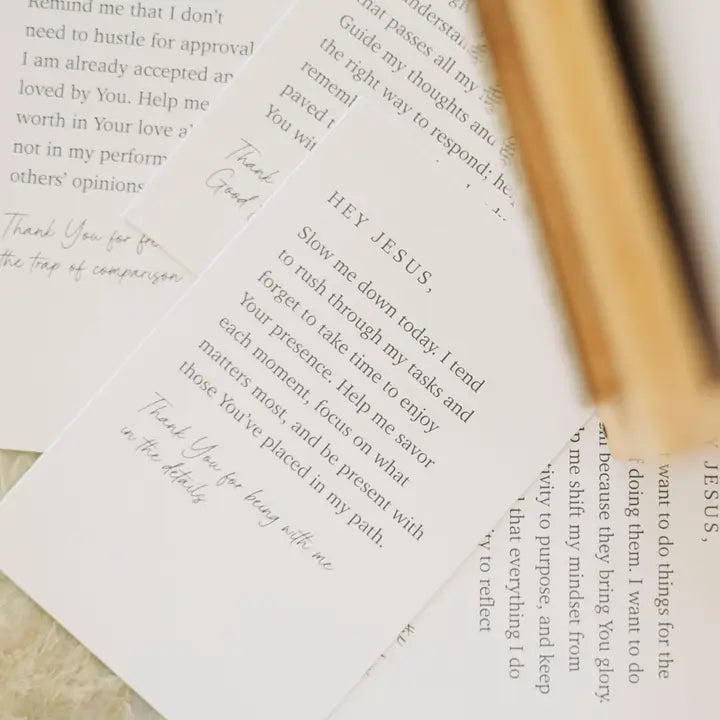 Remind me that I don't
need to hustle for approval
I am already accepted
loved by You. Help me
worth in Your love
not in my
others' opinions
Thank You for
the trap of comparison
that passes all my
Guide my thoughts and
the right way to respond;
paved
You
Thank
Good
HEY JESUS,
Slow me down today. I tend
to rush through my tasks and
forget to take time to enjoy
Your presence. Help me savor
each moment, focus on what
matters most, and be present with
those You've placed in my path.
Thank You for being with me
in the details
JESUS,
want to do things for the
doing them. I want to do
because they bring You glory.
me shift my mindset from
to purpose, and keep
that everything I do
to reflect